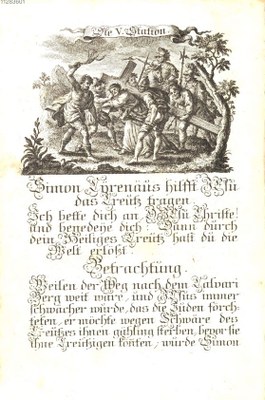 11283801
Die V. Station
Simon Cyrenäus hilfft JEsu
das Creütz tragen.
Ich bette dich an O JEsu Christe!
und benedeye dich: Dann durch
dein Heiliges Creütz hast du die
Welt erlößt.
Betrachtung.
Weilen der Weg nach dem Calvari
Berg weit ware, und JEsus immer
schwächer würde, das die Juden förch-
teten, er möchte wegen Schwäre des
Creützes ihnen gähling sterben, bevor sie
ihne Creützigen könten, würde Simon